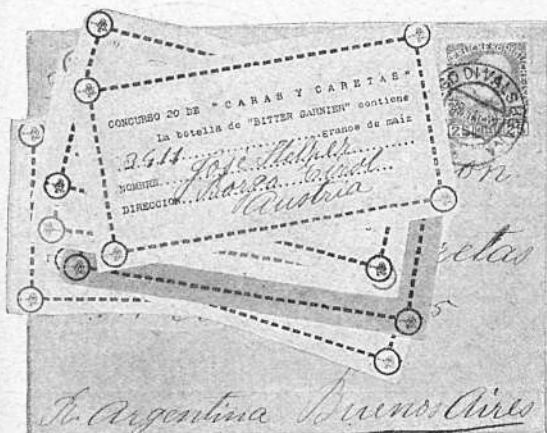 CONCURSO 20 DE "CARAS Y CARETAS"
La botella de "BITTER GARNIER" contiene
3411 granos de maíz
NOMBRE José
DIRECCION Borgo Tirol
Austria
on
retas
5
R. Argentina Buenos Aires
25 25